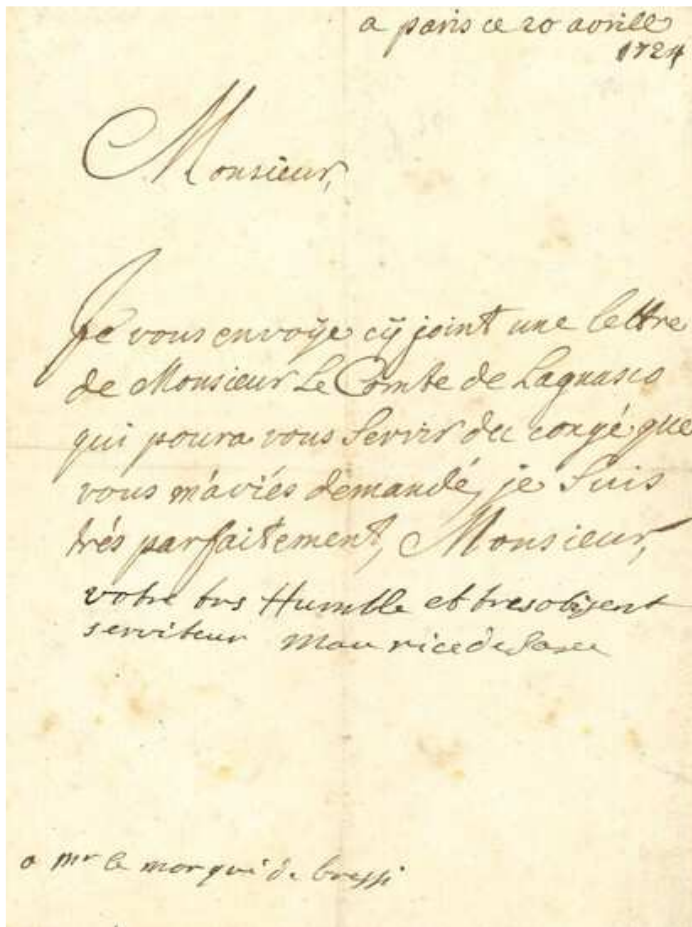 a paris ce 20 avrille
1724
Monsieur,
Je vous envoÿe cÿ joint une lettre
de Monsieur Le Comte de Lagnasco
qui poura vous servir du congé que
vous m'aviés demandé, je suis
trés parfaitement, Monsieur,
votre tres Humble et tres obisent
serviteur Maurice de Saxe
a mr le morqui de